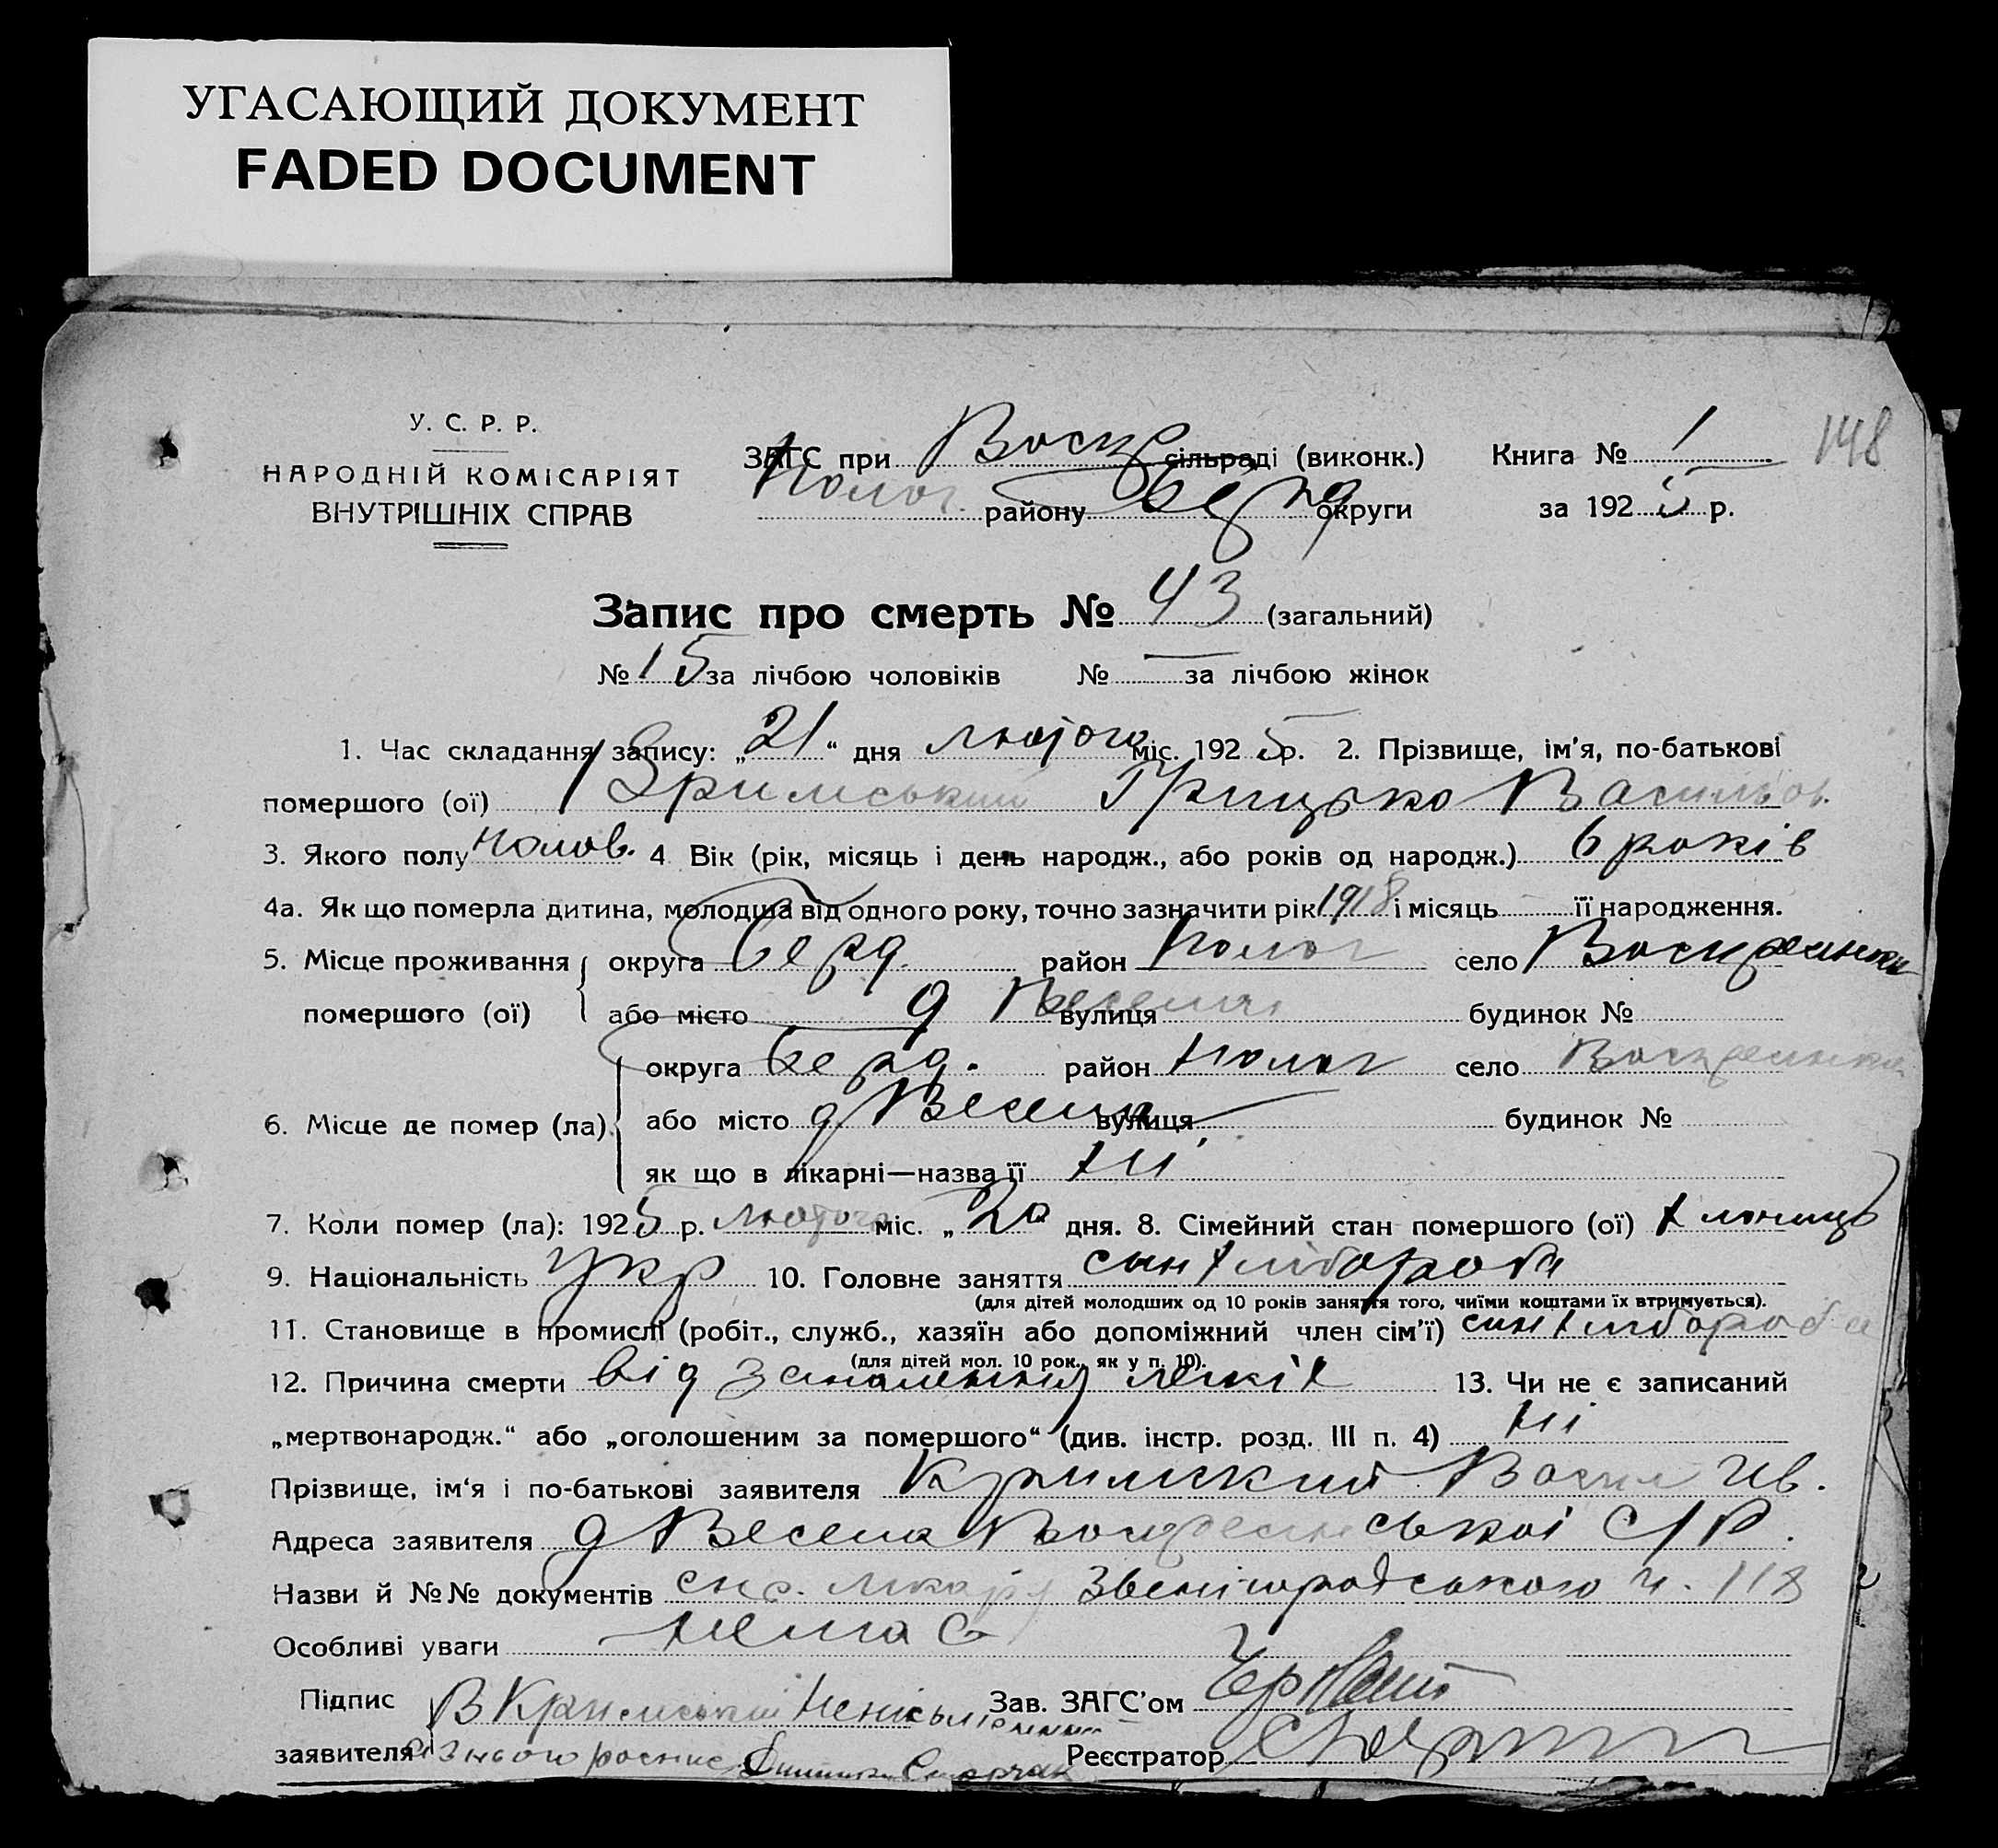 УГАСАЮЩИЙ ДОКУМЕНТ
FADED DOCUMENT
У. С. Р. Р.
НАРОДНІЙ КОМІСАРІЯТ
ВНУТРІШНІХ СПРАВ
148
ЗАГС при Воскр сільраді (виконк.) Книга № 1
Полог. району Берд округи за 1925 р.
Запис про смерть № 43 (загальний)
№ 15 за лічбою чоловіків № — за лічбою жінок
1. Час складання запису: „21“ дня лютого міс. 1925 р. 2. Прізвище, ім'я, по-батькові
помершого (ої) Кримський Грицько Васильов.
3. Якого полу чолов. 4 Вік (рік, місяць і день народж., або років од народж.) 6 років
4а. Як що померла дитина, молодша від одного року, точно зазначити рік 1918 і місяць її народження.
5. Місце проживання округа Берд. район Полог село Воскресинка
помершого (ої) або місто д Весела вулиця будинок №
округа Берд. район Полог село Воскресинка
6. Місце де помер (ла) або місто д Весела вулиця будинок №
як що в лікарні—назва її ні
7. Коли помер (ла): 1925 р. лютого міс. „20 дня. 8. Сімейний стан помершого (ої) хлопець
9. Національність укр 10. Головне заняття син хлібороба
(для дітей молодших од 10 років заняття того, чиїми коштами їх втримується).
11. Становище в промислі (робіт., служб., хазяїн або допоміжний член сім'ї) син хлібороба
(для дітей мол. 10 рок., як у п. 10).
12. Причина смерти від запалення легкіх 13. Чи не є записаний
„мертвонародж.“ або „оголошеним за помершого“ (див. інстр. розд. III п. 4) ні
Прізвище, ім'я і по-батькові заявителя Кримский Васил Ив.
Адреса заявителя д Весела Воскресинської С/Р.
Назви й №№ документів спр. лікаря Звенігородського ч. 118
Особливі уваги немає
Підпис В Кримський Неписьменний Зав. ЗАГС'ом
заявителя за нього роспис. Реєстратор